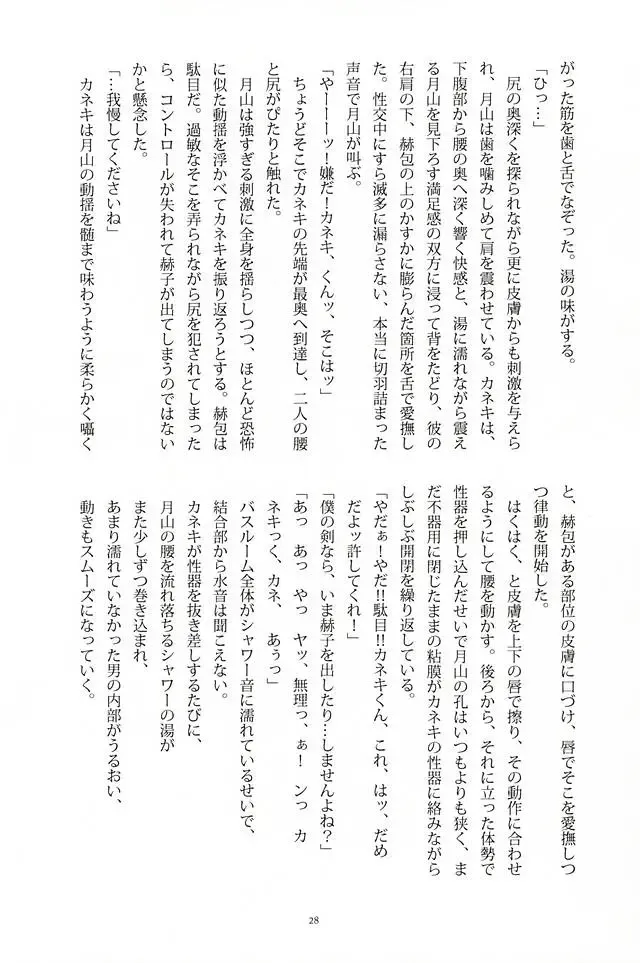 がった筋を歯と舌でなぞった。湯の味がする。
「ひっ…」
尻の奥深くを探られながら更に皮膚からも刺激を与えら
れ、月山は歯を噛みしめて肩を震わせている。カネキは、
下腹部から腰の奥へ深く響く快感と、湯に濡れながら震え
る月山を見下ろす満足感の双方に浸って背をたどり、彼の
右肩の下、赫包の上のかすかに膨らんだ箇所を舌で愛撫し
た。性交中にすら滅多に漏らさない、本当に切羽詰まった
声音で月山が叫ぶ。
「やーーーッ！嫌だ！カネキ、くんッ、そこはッ」
ちょうどそこでカネキの先端が最奥へ到達し、二人の腰
と尻がぴたりと触れた。
月山は強すぎる刺激に全身を揺らしつつ、ほとんど恐怖
に似た動揺を浮かべてカネキを振り返ろうとする。赫包は
駄目だ。過敏なそこを弄られながら尻を犯されてしまった
ら、コントロールが失われて赫子が出てしまうのではない
かと懸念した。
「…我慢してくださいね」
カネキは月山の動揺を髄まで味わうように柔らかく囁く
と、赫包がある部位の皮膚に口づけ、唇でそこを愛撫しつ
つ律動を開始した。
はくはく、と皮膚を上下の唇で擦り、その動作に合わせ
るようにして腰を動かす。後ろから、それに立った体勢で
性器を押し込んだせいで月山の孔はいつもよりも狭く、ま
だ不器用に閉じたままの粘膜がカネキの性器に絡みながら
しぶしぶ開閉を繰り返している。
「やだぁ！やだ!!駄目!!カネキくん、これ、はッ、だめ
だよッ許してくれ！」
「僕の剣なら、いま赫子を出したり…しませんよね？」
「あっ　あっ　やっ　ヤッ、無理っ、ぁ！　ンっ　カ
ネキっく、カネ、　あぅっ」
バスルーム全体がシャワー音に濡れているせいで、
結合部から水音は聞こえない。
カネキが性器を抜き差しするたびに、
月山の腰を流れ落ちるシャワーの湯が
また少しずつ巻き込まれ、
あまり濡れていなかった男の内部がうるおい、
動きもスムーズになっていく。
28